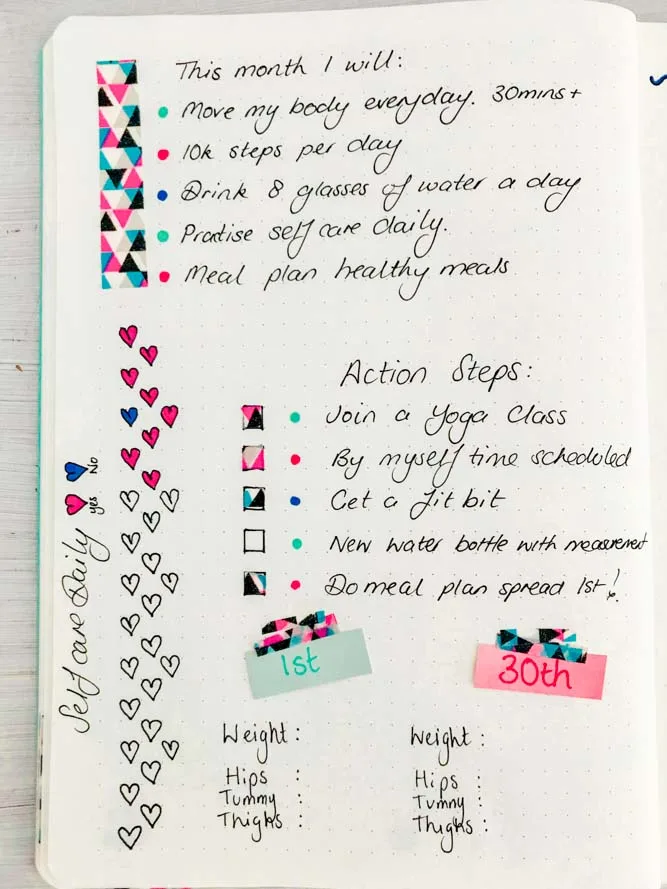 This month I will:
Move my body everyday. 30mins+
10k steps per day
Drink 8 glasses of water a day
Practise self care daily.
Meal plan healthy meals
Action Steps:
Join a Yoga Class
By myself time scheduled
Get a fit bit
New water bottle with measurement
Do meal plan spread 1st!
Self care Daily
yes
No
1st
30th
Weight :
Hips :
Tummy :
Thighs :
Weight :
Hips :
Tummy :
Thighs :